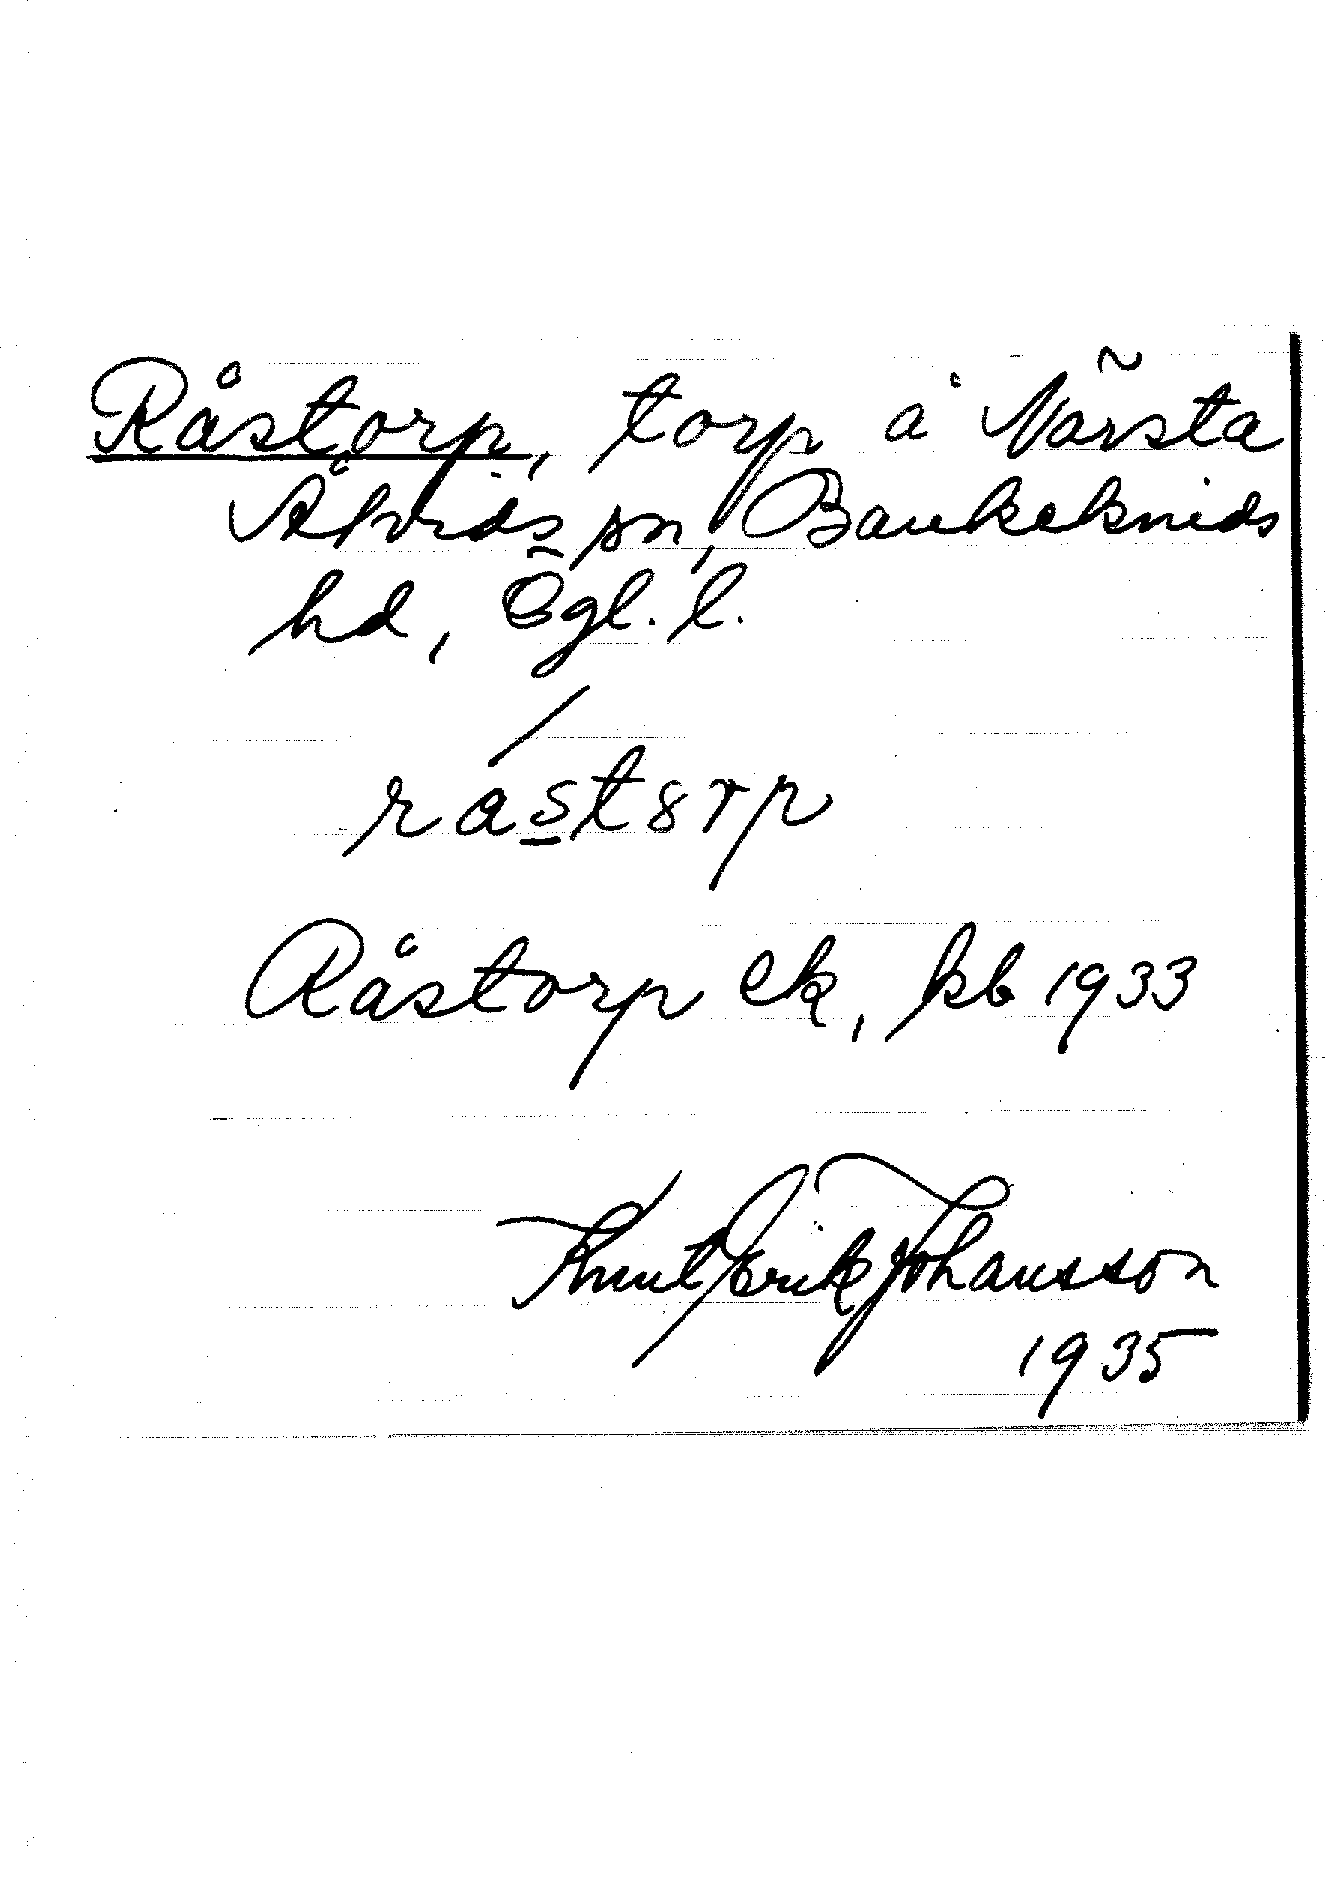 Råstorp, torp å Närsta
Åtvids sn, Bankekinds
hd, Ögl. l.
rastorp
Råstorp ek, kb 1933
Knut Erik Johansson
1935